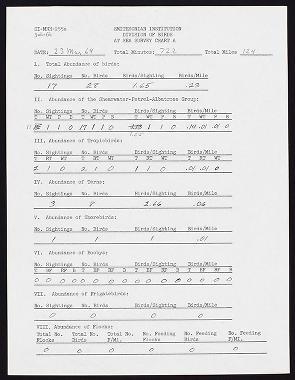 SI-MNH-955a
3-6-64
SMITHSONIAN INSTITUTION
DIVISION OF BIRDS
AT SEA SURVEY CHART 4
DATE: 23 May, 64 Total Minutes: 722 Total Miles 124
I. Total Abundance of birds:
No. Sightings No. Birds Birds/Sighting Birds/Mile
17 28 1.65 .23
II. Abundance of the Shearwater-Petrel-Albatross Group:
No. Sightings No. Birds Birds/Sighting Birds/Mile
T WT P S T WT P S T WT P S T WT P S
1 1 0 17 1 1 0 1 1 0 .14 .01 .01 0
III. Abundance of Tropicbirds:
No. Sightings No. Birds Birds/Sighting Birds/Mile
T RT WT T RT WT T RT WT T RT WT
2 1 0 2 1 0 1 1 .01 .01 0
IV. Abundance of Terns:
No. Sightings No. Birds Birds/Sighting Birds/Mile
3 8 2.66 .06
V. Abundance of Shorebirds:
No. Sightings No. Birds Birds/Sighting Birds/Mile
1 1 1 .01
VI. Abundance of Boobys:
No. Sightings No. Birds Birds/Sighting Birds/Mile
T BF RF B T BF RF B T BF RF B T BF RF B
0 0 0 0 0 0 0 0 0 0 0 0 0 0 0 0
VII. Abundance of Frigatebirds:
No. Sightings No. Birds Birds/Sighting Birds/Mile
0 0 0 0
VIII. Abundance of Flocks:
Total No. Total No. Total No. No. Feeding No. Feeding No. Feeding
Flocks Birds F/Mi. Flocks Birds F/Mi.
0 0 0 0 0 0